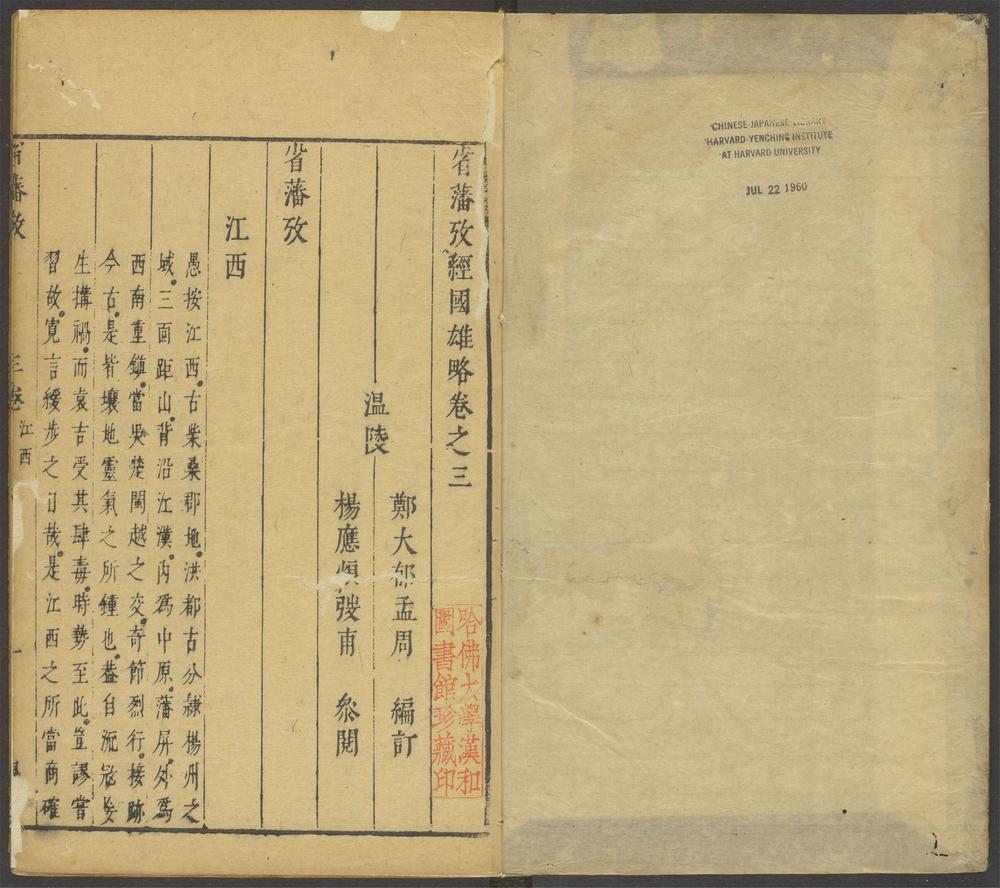 CHINESE-JAPANESE LIBRARY
HARVARD-YENCHING INSTITUTE
AT HARVARD UNIVERSITY
JUL 22 1960
省藩攷經國雄略卷之三
哈佛大學漢和
圖書館珍藏印
鄭大郁孟周 編訂
温陵
楊應 發甫 叅閱
省藩攷
江西
愚按江西古柴桑郡地洪都古分隸楊州之
域三面距山背沿江漢内爲中原藩屏外爲
西南重鎮當吳楚閩越之交奇節烈行接跡
今古是皆壤地靈氣之所鍾也葢自流冦
生搆禍而袁吉受其肆毒時勢至此豈謬嘗
習故寛言緩步之日哉是江西之所當商確
省藩攷 三卷 江西 一